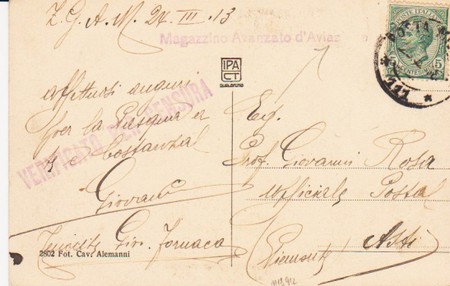 Z.G.A.M. 24 III 13
Magazzino Avanzato d'Aviaz
POSTA
5
IPA
CT
affettuosi auguri
per la Pasqua e
Costanza
VERIFICATO PER CENSURA
Giovanni
Giov. Fornaca
Egr.
Prof. Giovanni Rosa
Ufficiale Postal
Asti
(Piemont
2802 Fot. Cav. Alemanni